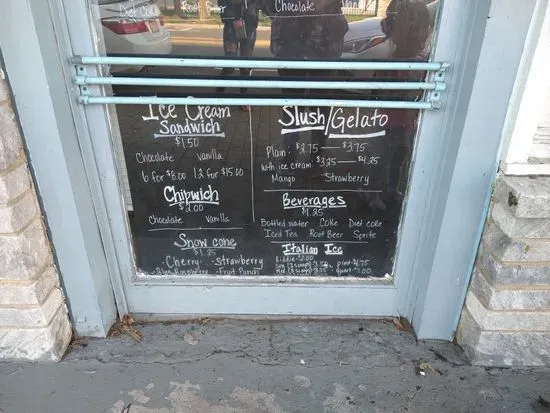 Diet Coke
Root Beer
Chocolate
Ice Cream
Sandwich
$1.50
Chocolate Vanilla
6 for $8.00 12 for $15.00
Chipwich
$2.00
Chocolate Vanilla
Snow cone
$1.25
Cherry Strawberry
Blue Raspberry Fruit Punch
Slush/Gelato
Plain: $2.75 — $3.75
With ice cream: $3.25 — $4.25
Mango Strawberry
Beverages
$1.25
Bottled water Coke Diet coke
Iced Tea Root Beer Sprite
Italian Ice
Kiddie